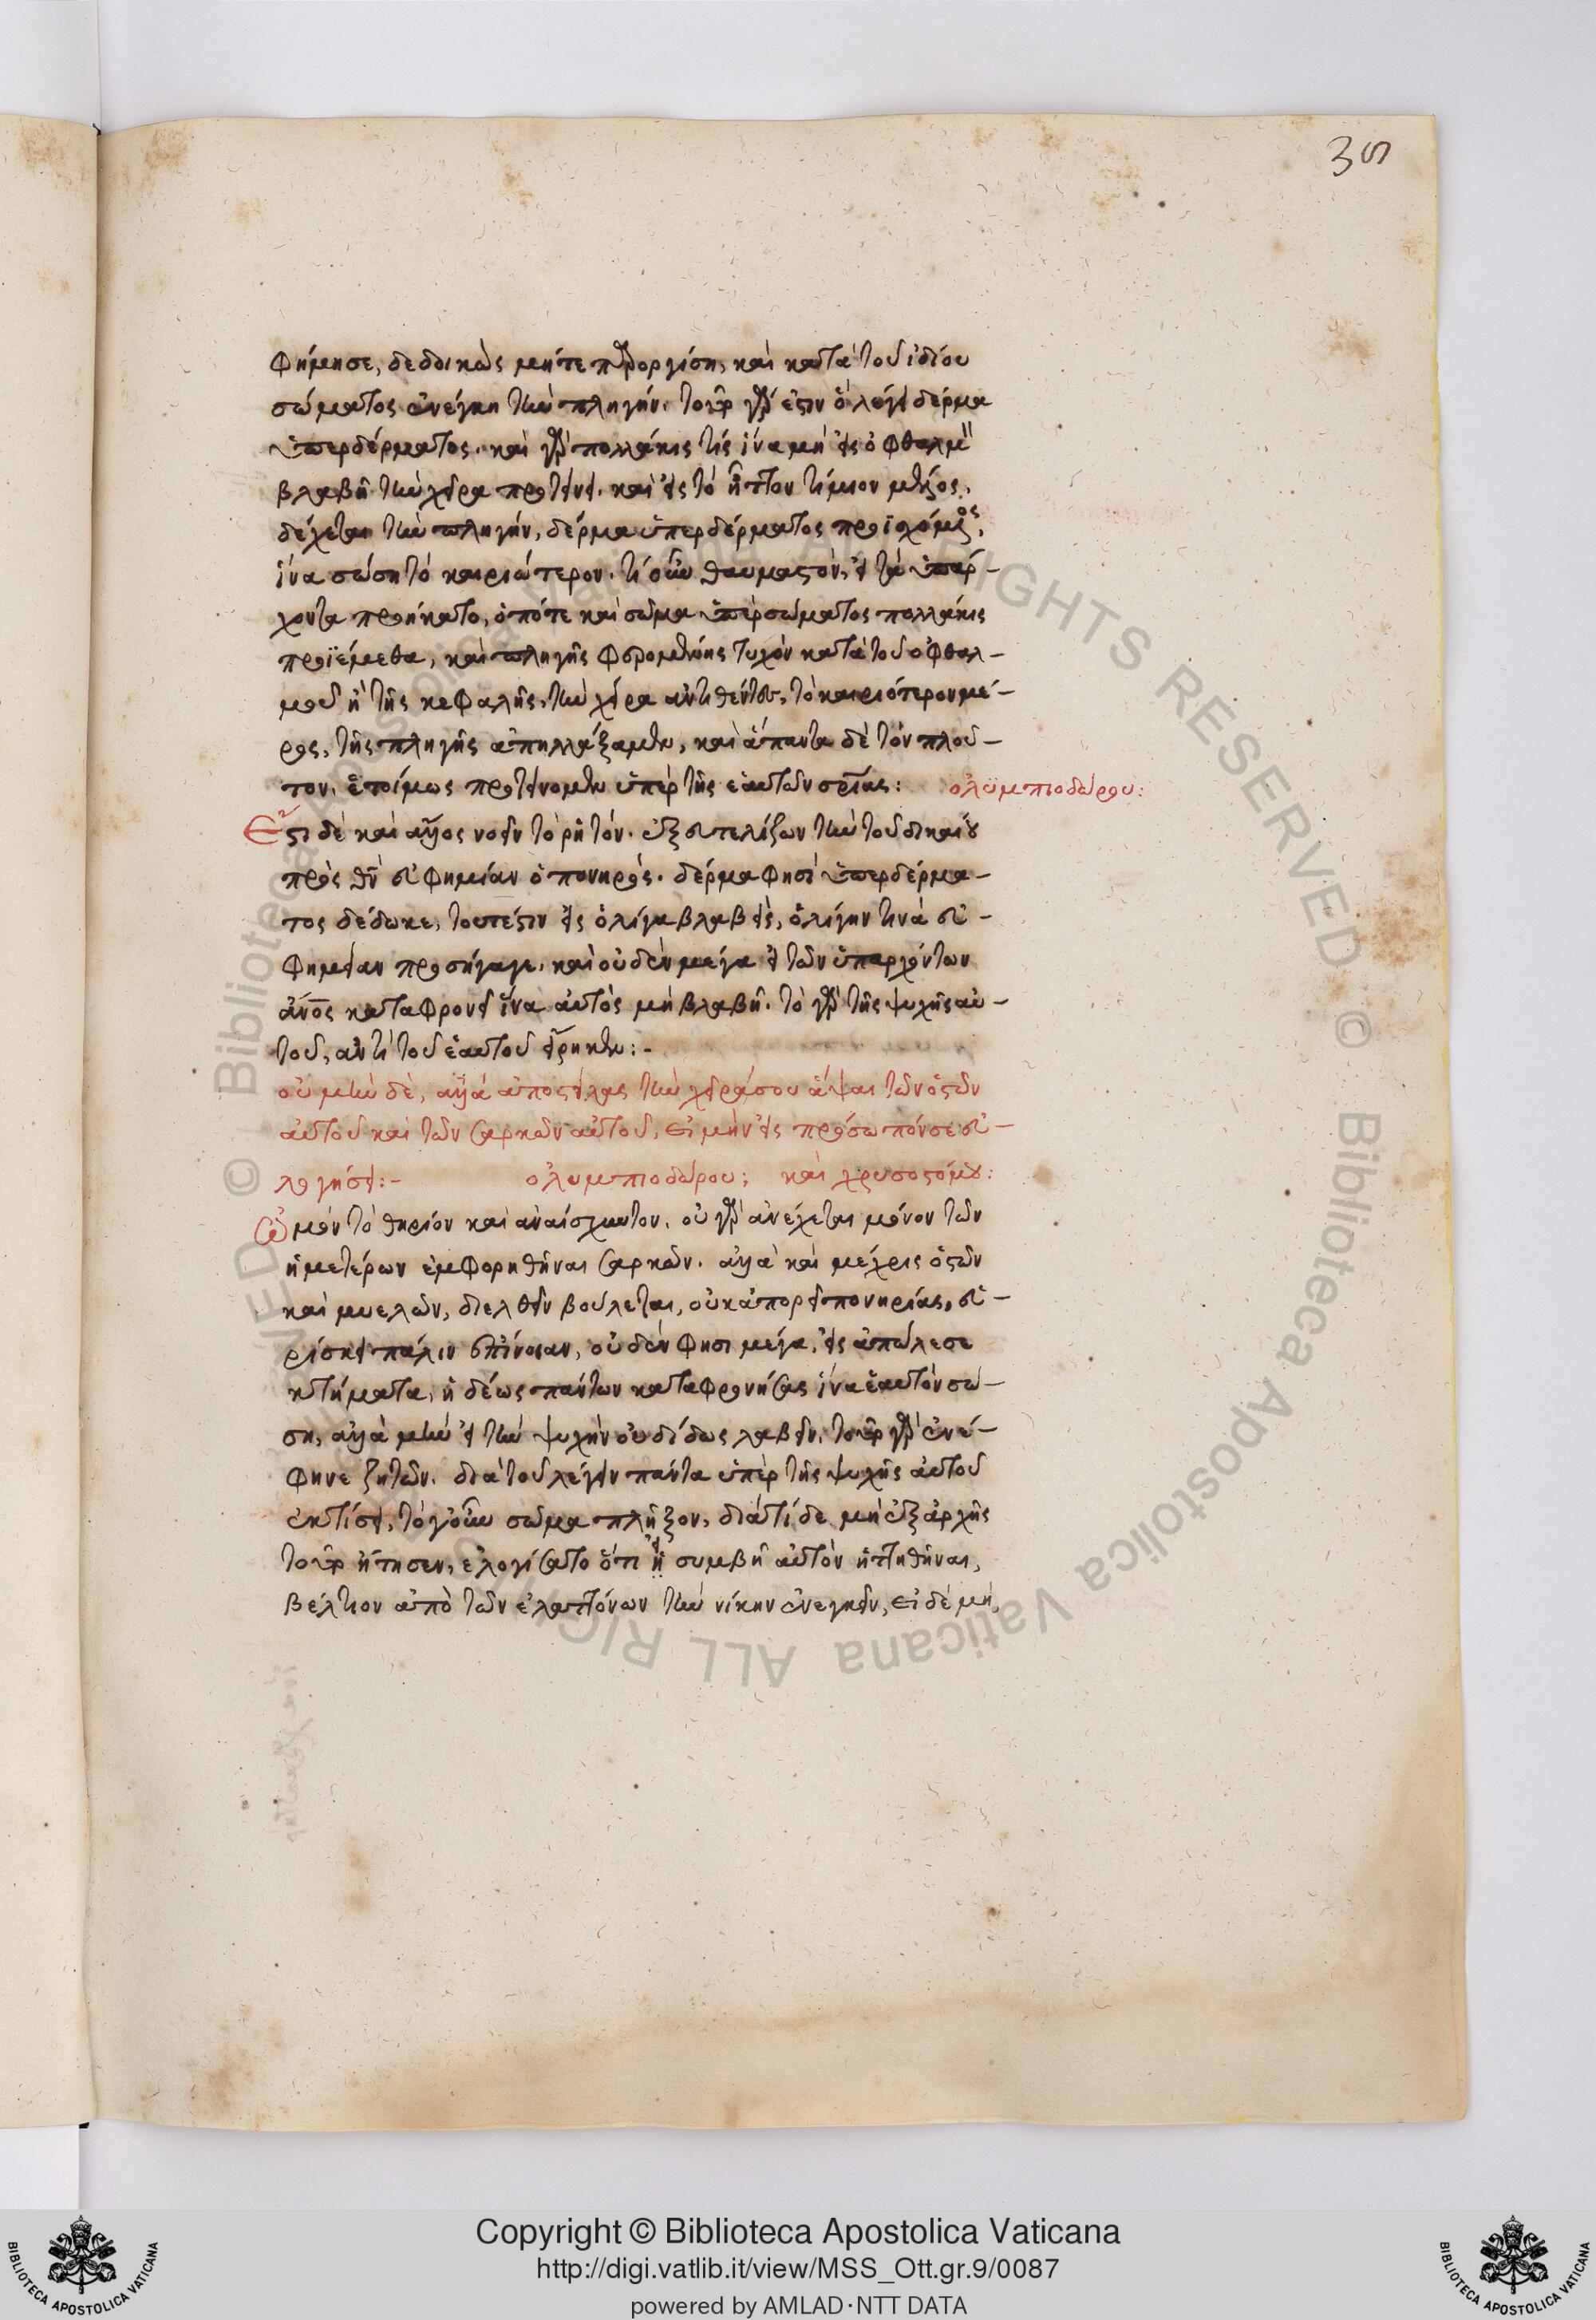 36
φήμησε, δεδοικὼς μήτε παροργίση, καὶ κατὰ τοῦ ἰδίου
σώματος ἀνεγήγη τὴν πληγήν. τοῦτο γάρ ἐστιν ὃ λέγει δέρμα
ὑπερ δέρματος. καὶ γὰρ πολλάκις τίς ἵνα μὴ εἰς ὀφθαλμ
βλαβῆ τὴν χεῖρα προτείνει. καὶ εἰς τὸ ἧττον τίμιον μέρος,
δέχεται τὴν πληγήν, δέρμα ὑπερ δέρματος προϊσχόμενος,
ἵνα σώση τὸ καιριώτερον. τί οὖν θαυμαστὸν, εἰ τὰ ὑπάρ-
χοντα προήκατο, ὁπότε καὶ σῶμα ὑπὲρ σώματος πολλάκις
προϊέμεθα, καὶ πληγῆς φερομένης τυχὸν κατὰ τοῦ ὀφθαλ-
μοῦ ἢ τῆς κεφαλῆς, τὴν χεῖρα ἀντιθέντες, τὸ καιριότερον μέ-
ρος, τῆς πληγῆς ἀπηλλάξαμεν, καὶ ἅπαντα δὲ τὸν πλοῦ-
τον, ἑτοίμως προτείνομεν ὑπὲρ τῆς ἑαυτῶν σρίας: ὀλϋμπιοδώρου:
Ἔστι δὲ καὶ ἄλλως νοεῖν τὸ ῥητόν. ἐξευτελίζων τὴν τοῦ δικαίου
πρὸς θν εὐφημίαν ὁ πονηρός. δέρμα φησὶ ὑπερ δέρμα-
τος δέδωκε, τουτέστιν εἰς ὀλίγα βλαβεὶς, ὀλίγην τινὰ εὐ-
φημίαν προσήγαγε. καὶ οὐδὲν μέγα εἰ τῶν ὑπαρχόντων
ἄνος καταφρονεῖ ἵνα αὐτὸς μὴ βλαβῆ. τὸ γὰρ τῆς ψυχῆς αὐ-
τοῦ, ἀντὶ τοῦ ἑαυτοῦ εἴρηκεν:-
οὐ μὴν δὲ, ἀλλὰ ἀποστείλας τὴν χεῖρά σου ἅψαι τῶν ὀστῶν
αὐτοῦ καὶ τῶν σαρκῶν αὐτοῦ, εἰ μὴν εἰς πρόσωπόν σε εὐ-
λογήσει:- ὀλυμπιοδώρου: καὶ χρυσοστόμου:
Ὠμὸν τὸ θηρίον καὶ ἀναίσχυντον. οὐ γὰρ ἀνέχεται μόνον τῶν
ἡμετέρων ἐμφορηθῆναι σαρκῶν. ἀλλὰ καὶ μέχρις ὀστῶν
καὶ μυελῶν, διελθεῖν βούλεται, οὐκ ἀπορεῖ πονηρίας, εὑ-
ρίσκει πάλιν ἐπίνοιαν, οὐδὲν φησι μέγα, εἰς ἀπώλεσε
κτήματα, ἡδέως πάντων καταφρονήσας ἵνα ἑαυτὸν σώ-
ση, ἀλλὰ μὴν εἰ τὴν ψυχὴν οὐ δίδως λαβεῖν, τοῦτο γὰρ ἐνέ-
φηνε ζητῶν. διὰ τοῦ λέγειν πάντα ὑπὲρ τῆς ψυχῆς αὐτοῦ
ἐκτίσει, τὸ γοῦν σῶμα πλῆξον, διάτί δε μὴ ἐξ ἀρχῆς
τοῦτο ἤτησεν, ἐλογίσατο ὅτι εἰ συμβῆ αὐτὸν ἡττηθῆναι,
βέλτιον ἀπὸ τῶν ἐλαττόνων τὴν νίκην ἐνεγκεῖν, εἰ δὲ μή,
Copyright © Biblioteca Apostolica Vaticana
http://digi.vatlib.it/view/MSS_Ott.gr.9/0087
powered by AMLAD·NTT DATA